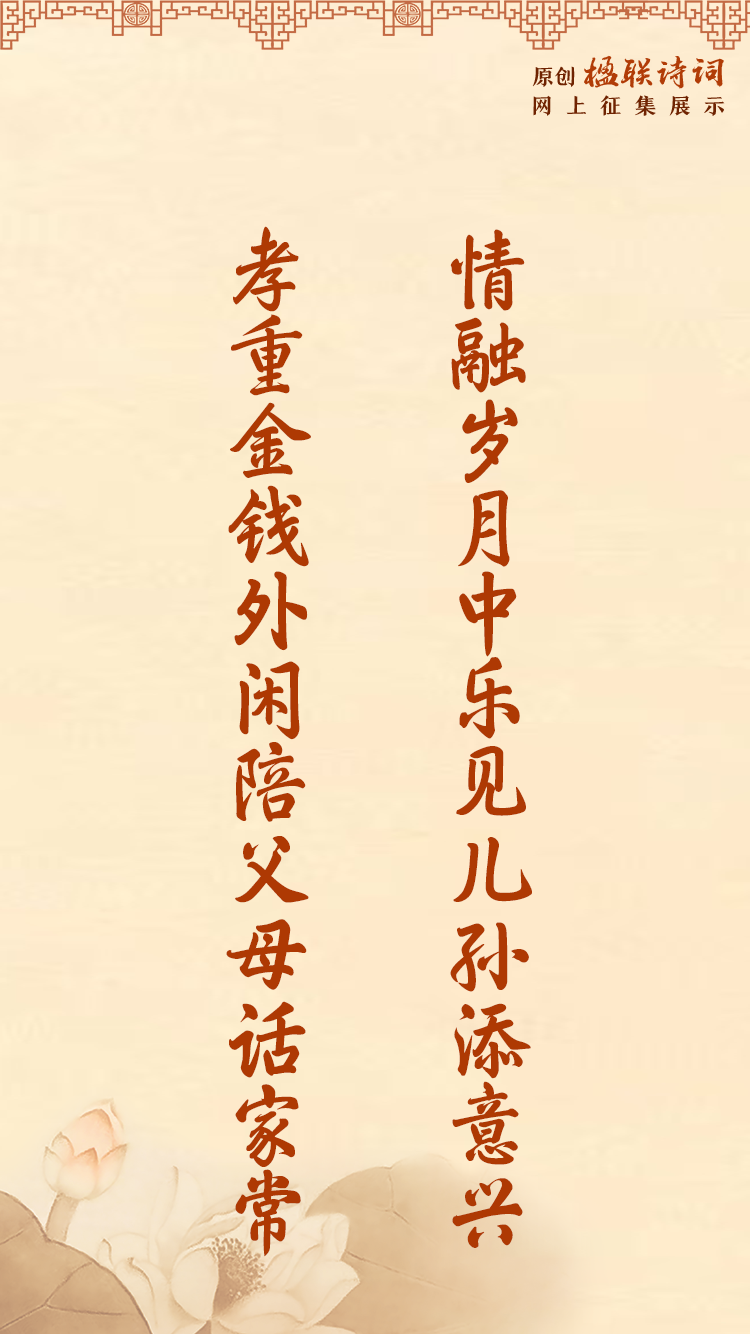 原创 楹联诗词
网上征集展示
情融岁月中乐见儿孙添意兴
孝重金钱外闲陪父母话家常